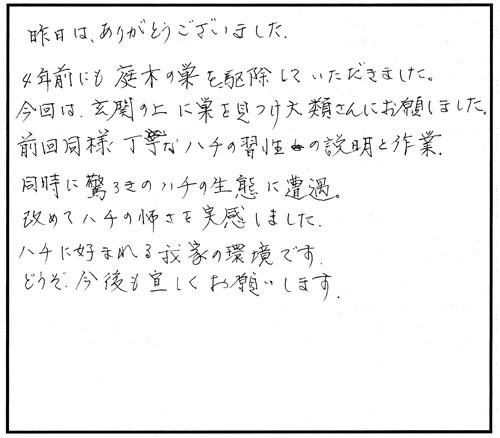 昨日は、ありがとうございました.
4年前にも庭木の巣を駆除していただきました。
今回は、玄関の上に巣を見つけ大類さんにお願しました。
前回同様丁寧なハチの習性の説明と作業.
同時に驚ろきのハチの生態に遭遇。
改めてハチの怖さを実感しました.
ハチに好まれる我家の環境です.
どうぞ.今後も宜しくお願いします.